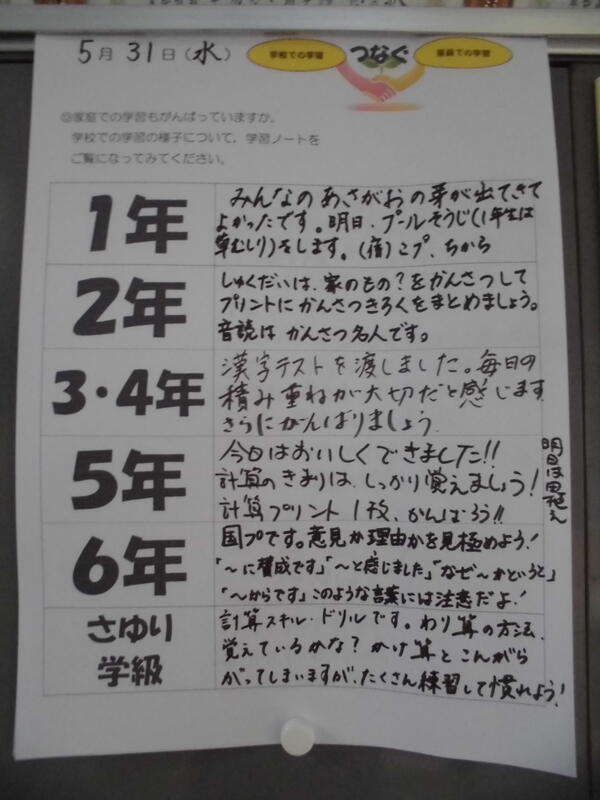 5月31日(水)
学校での学習 つなぐ 家庭での学習
◎家庭での学習もがんばっていますか。
学校での学習の様子について、学習ノートを
ご覧になってみてください。
1年
みんなのあさがおの芽が出てきて
よかったです。明日、プールそうじ(1年生は
草むしり)をします。(宿)こプ、ちから
2年
しゅくだいは、家のもの?をかんさつして
プリントにかんさつきろくをまとめましょう。
音読はかんさつ名人です。
3・4年
漢字テストを渡しました。毎日の
積み重ねが大切だと感じます
さらにがんばりましょう.
5年
今日はおいしくできました!!
計算のきまりは、しっかり覚えましょう!
計算プリント1枚、がんばろう!!
明日は田植え
6年
国プです。意見か理由かを見極めよう!
「〜に賛成です」「〜と感じました」「なぜ〜かというと」
「〜からです」このような言葉には注意だよ!
さゆり
学級
計算スキル・ドリルです。わり算の方法、
覚えているかな?かけ算とこんがら
がってしまいますが、たくさん練習して慣れよう!